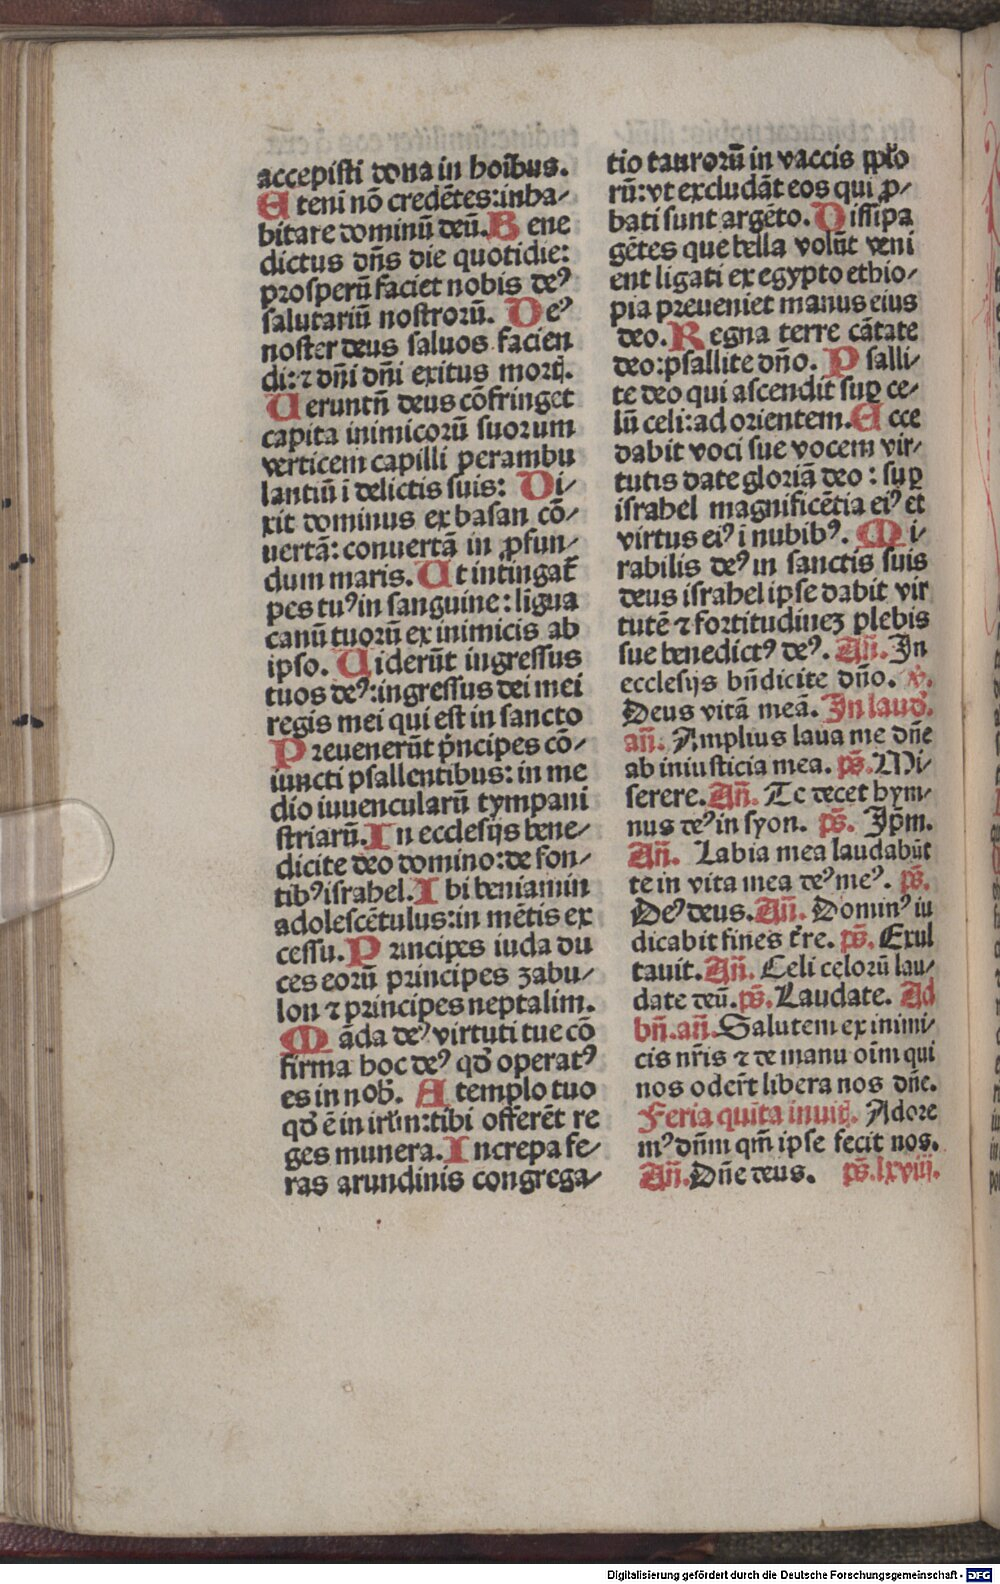 accepisti dona in hoı̄bus.
Eteni nō credētes:inha-
bitare dominū deū.Bene
dictus dn̄s die quotidie:
prosperū faciet nobis deꝰ
salutariū nostrorū. Deꝰ
noster deus saluos facien
di:⁊ dn̄i dn̄i exitus mortꝭ.
Ueruntn̄ deus cōfringet
capita inimicorū suorum
verticem capilli perambu
lantiū ī delictis suis: Di-
xit dominus ex basan cō-
uertā:conuertā in ꝓfun-
dum maris.Ut intingat̄
pes tuꝰ in sanguine:līgua
canū tuorū ex inimicis ab
ipso. Uiderūt ingressus
tuos deꝰ:ingressus dei mei
regis mei qui est in sancto
Preuenerūt pͥncipes cō-
iuncti psallentibus:in me
dio iuuencularū tympani
striarū.In ecclesijs bene-
dicite deo domino:de fon-
tibꝰ israhel.Ibi beniamin
adolescētulus:in mētis ex
cessu.Principes iuda du
ces eorū principes zabu-
lon ⁊ principes neptalim.
Māda deꝰ virtuti tue cō
firma hoc deꝰ qd̓ operatꝰ
es in nob̓. A templo tuo
qd̓ ē in irl̓m:tibi offerēt re
ges munera.Increpa fe-
ras arundinis congrega-
tio taurorū in vaccis pp̄lo
rū:vt excludāt eos qui ꝓ-
bati sunt argēto.Dissipa
gētes que bella volūt veni
ent ligati ex egypto ethio-
pia preueniet manus eius
deo.Regna terre cātate
deo:psallite dn̄o. Psalli-
te deo qui ascendit suꝑ ce-
lū celi:ad orientem.Ecce
dabit voci sue vocem vir-
tutis date gloriā deo:suꝑ
israhel magnificētia eiꝰ et
virtus eiꝰ ī nubibꝰ. Mi-
rabilis deꝰ in sanctis suis
deus israhel ipse dabit vir
tutē ⁊ fortitudineꝫ plebis
sue benedictꝰ deꝰ. An̄. In
ecclesijs bn̄dicite dn̄o. ꝟ.
Deus vitā meā. In laud̓.
an̄. Amplius laua me dn̄e
ab iniusticia mea. ps̄. Mi-
serere.An̄. Te decet hym-
nus deꝰ in syon. ps̄. Ip̄m.
An̄. Labia mea laudabūt
te in vita mea deꝰ meꝰ. ps̄.
Deꝰ deus.An̄. Dominꝰ iu
dicabit fines t̄re. ps̄. Exul
tauit.An̄. Celi celorū lau-
date deū.ps̄.Laudate. Ad
bn̄.an̄.Salutem ex inimi-
cis nr̄is ⁊ de manu oīm qui
nos oder̄t libera nos dn̄e.
Feria quīta inuitꝭ. Adore
mꝰ dn̄m qm̄ ipse fecit nos.
An̄.Dn̄e deus. ps̄.lxviij.
Digitalisierung gefördert durch die Deutsche Forschungsgemeinschaft - DFG